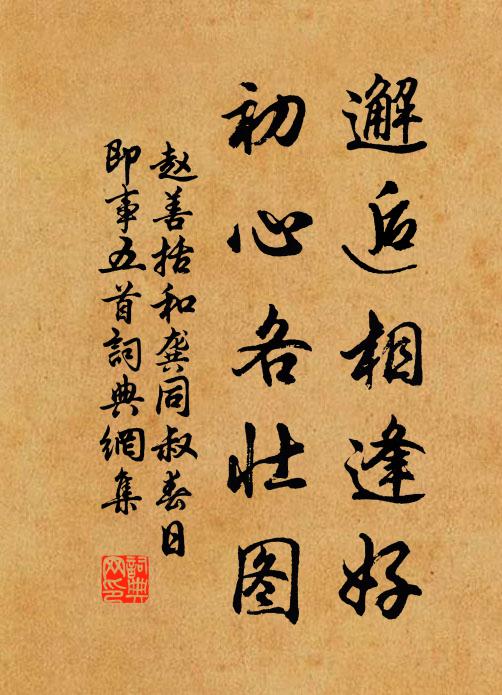 邂逅相逢好
初心各壮图
赵善括和龚同叔春日
即事五首詞典網集
詞典網印